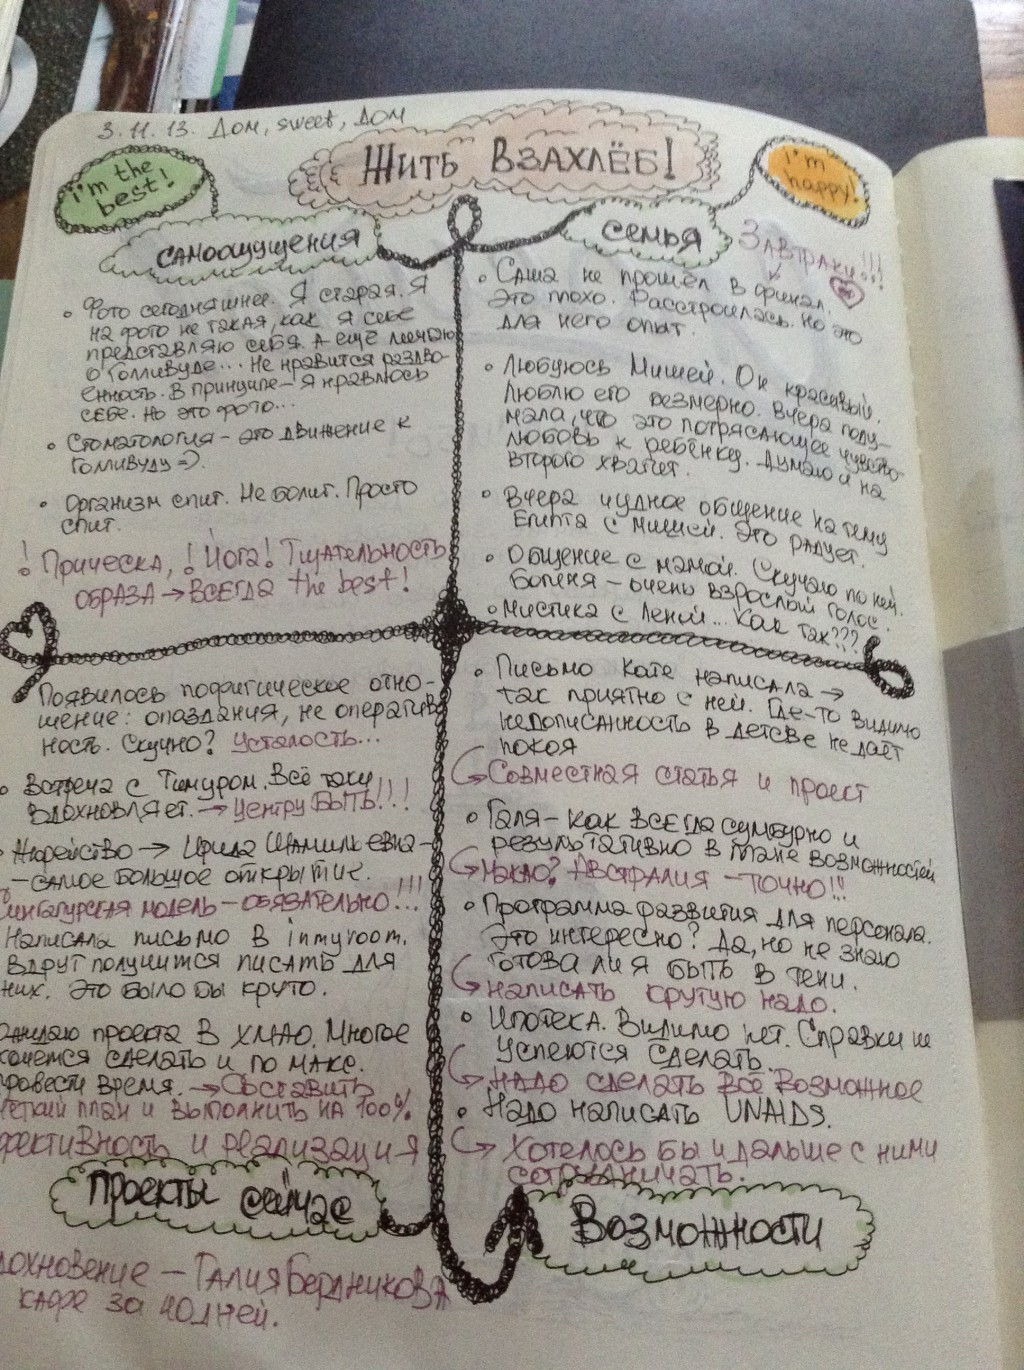 3.11.13. Дом, sweet, дом
Жить взахлёб!
i'm the
best!
i'm
happy!
самоощущения
Фото сегодняшнее. Я старая. Я
на фото не такая, как я себе
представляю себя. А ещё мечтаю
о Голливуде... Не нравится раздво-
енность. В принципе - я нравлюсь
себе. Но это фото...
Стоматология - это движение к
Голливуду =).
Организм спит. Не болит. Просто
спит.
! Прическа, ! Йога! Тщательность
образа → всегда the best!
семья
Завтраки!!!
Саша не прошёл в финал.
Это плохо. Расстроилась. Но это
для него опыт.
Любуюсь Мишей. Он красивый.
Люблю его безмерно. Вчера поду-
мала, что это потрясающее чувство-
любовь к ребёнку. Думаю и на
второго хватит.
Вчера чудное общение на тему
Египта с Мишей. Это радует.
Общение с мамой. Скучаю по ней.
Богиня - очень взрослый голос.
Мистика с Леной... Как так???
Появилось пофигическое отно-
шение: опоздания, не оператив
ность. Скучно? Усталость...
Встреча с Тимуром. Всё таки
вдохновляет. → центру быть!!!
→ Ирида Шамильевна -
- самое большое открытие.
Сингапурская модель - обязательно!!!
Написала письмо в inmyroom.
Вдруг получится писать для
них. Это было бы круто.
Ожидаю проекта в ХМАО. Многое
хочется сделать и по макс.
провести время. → Составить
чёткий план и выполнить на 100%
эффективность и реализация
проекты сейчас
Вдохновение - Галия Бердникова
кафе за 40 дней.
Письмо Кате написала →
так приятно с ней. Где-то видимо
недописанность в детсве не даёт
покоя
Совместная статья и проект
Галя - как всегда сумбурно и
результативно в плане возможностей
Австралия - точно!!!
Программа развития для персонала.
Это интересно? Да, но не знаю
готова ли я быть в тени.
Написать крутую надо.
Ипотека. Видимо нет. Справки не
успеются сделать.
Надо сделать всё возможное
Надо написать UNAIDS.
Хотелось бы и дальше с ними
сотрудничать.
Возможности